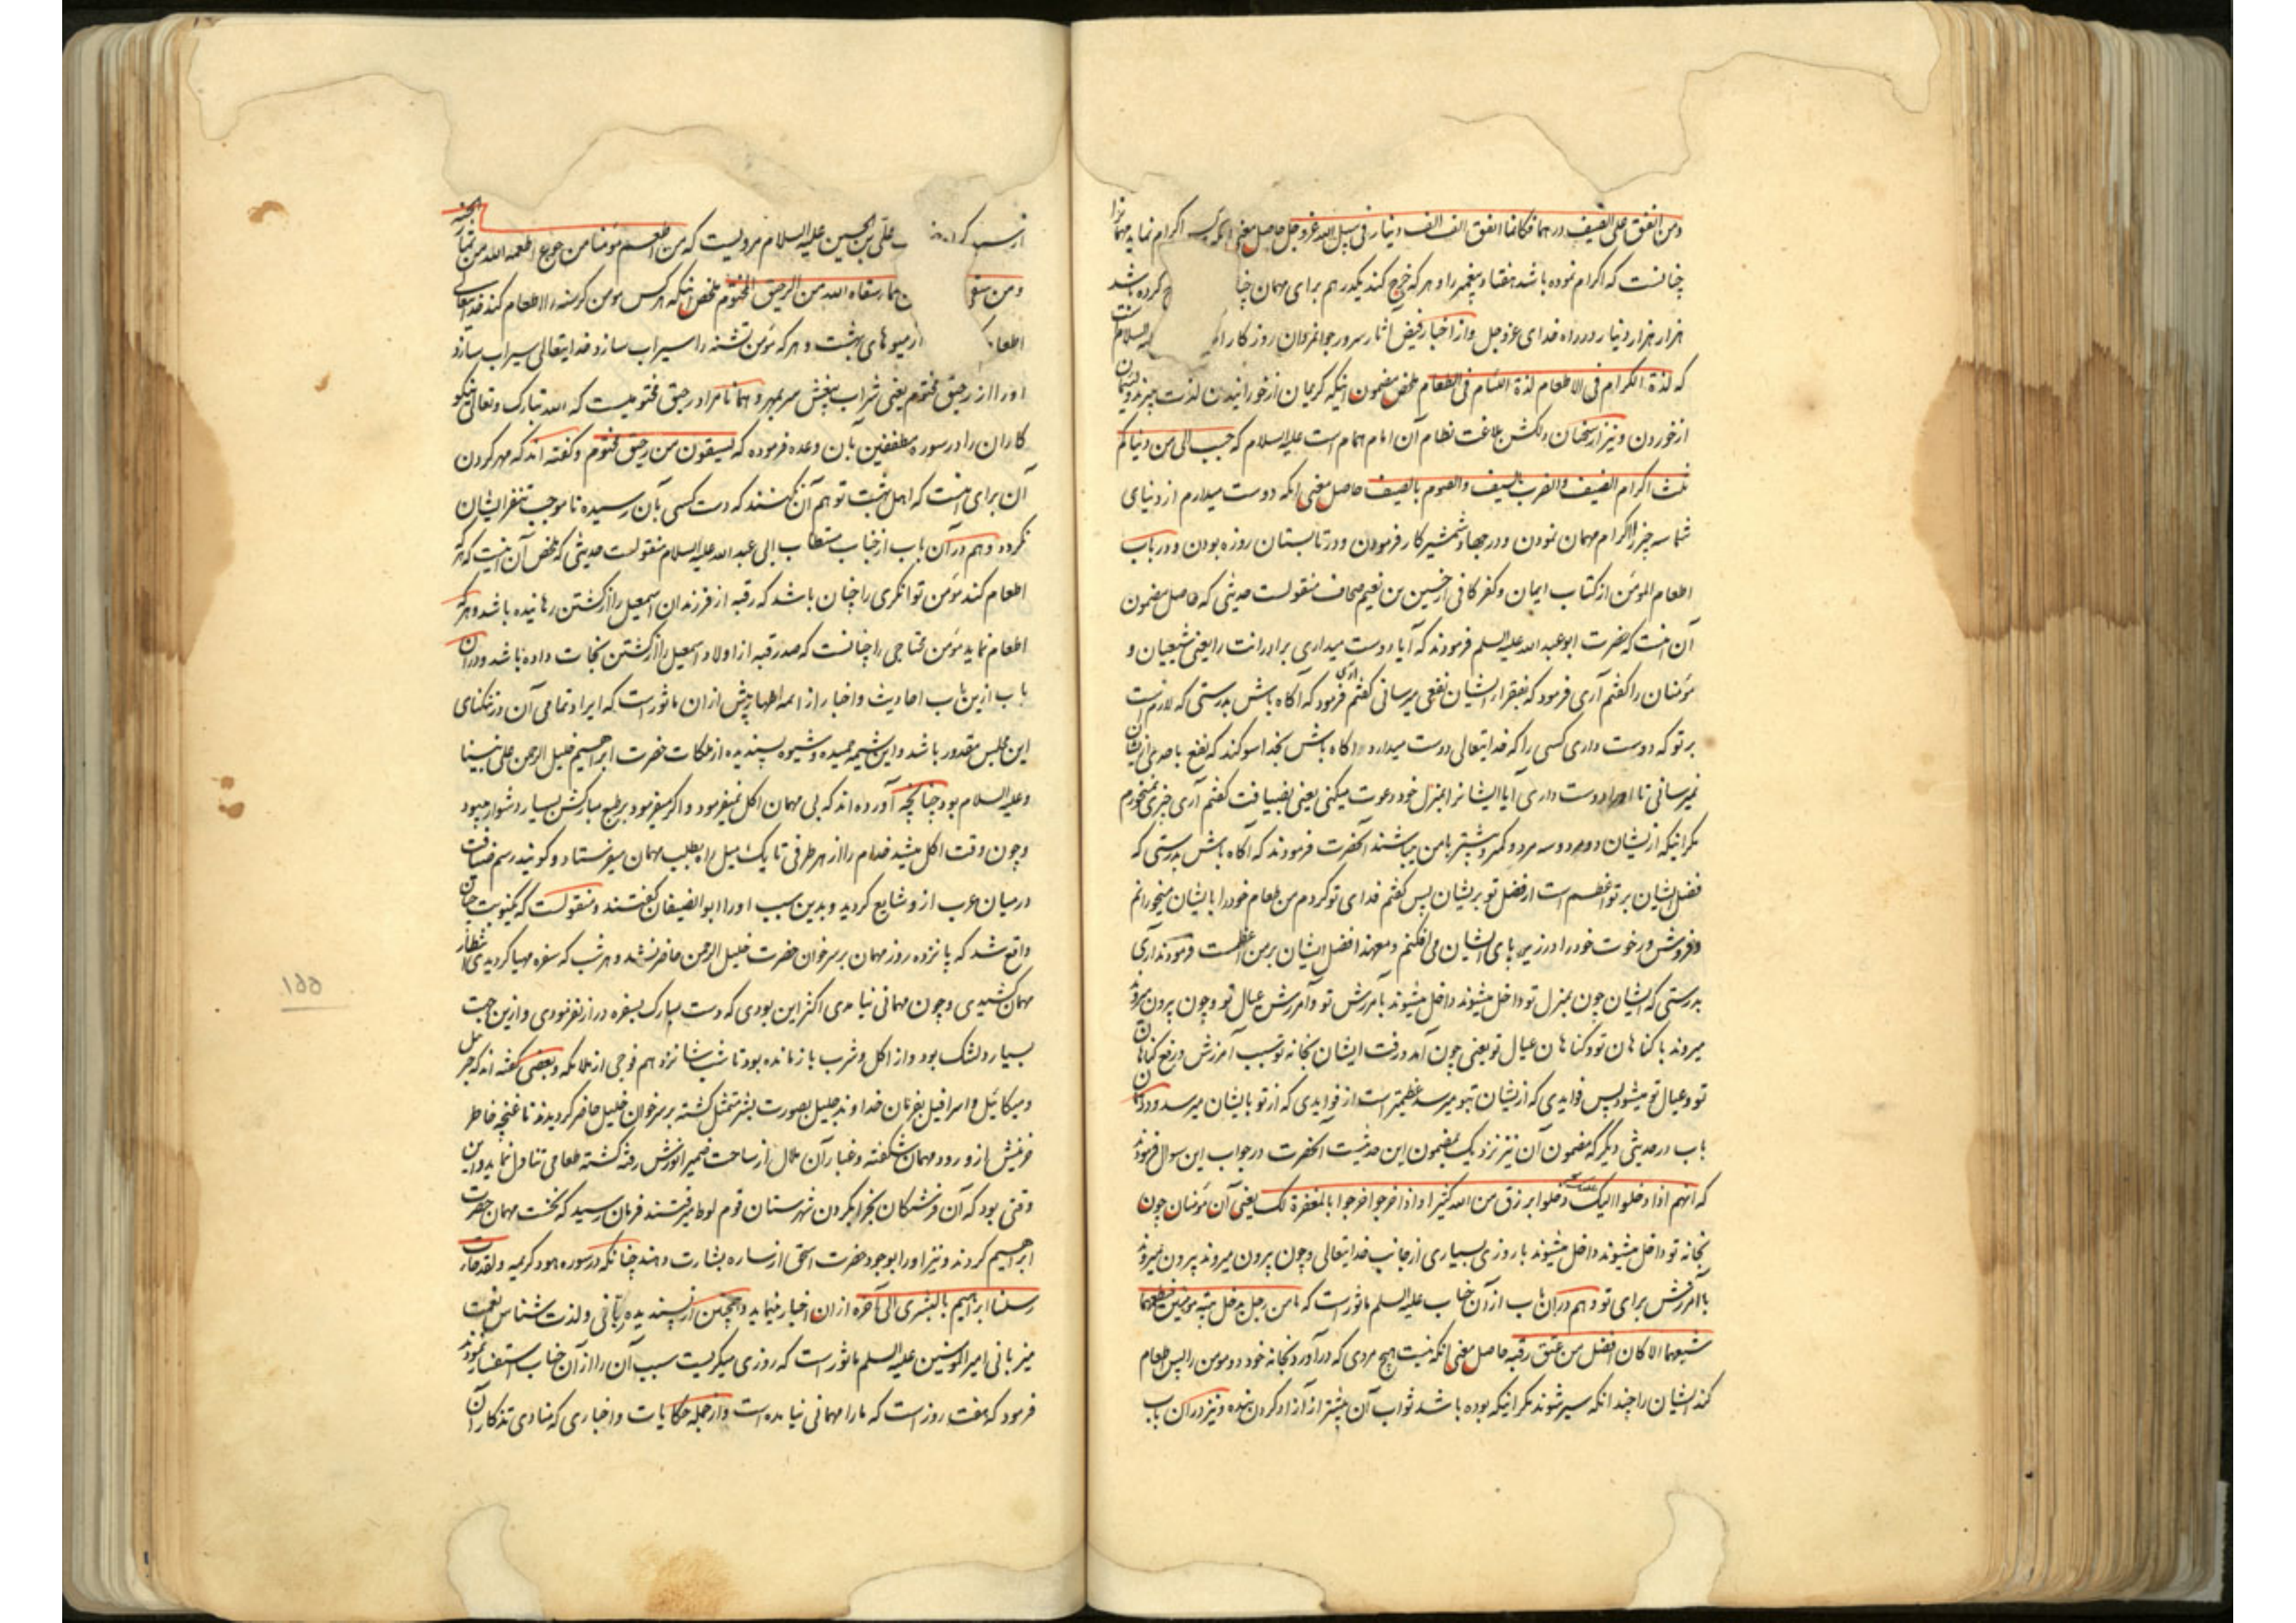 ومن انفق علی الضیف درهما فکانما انفق الف الف دینار فی سبیل الله عزوجل حاصل معنی آنکه اکرام نماید مهمانرا
چنانست که اکرام نموده باشد هفتاد پیغمبر را و هر که خرج کند یکدرهم برای مهمان چنا کرده باشد
هزار هزار دینار در راه خدای عزوجل واز اخبار فیض آثار سرور جوانمردان روزکار السلام
که لذة الکرام فی الاطعام لذة اللئام فی الطعام ملخص مضمون اینکه کریمان از خورانیدن لذت میبرند و لئیمان
از خوردن و نیز از سخنان دلکش بلاغت نظام آن امام همام است علیه السلام که حبب الی من دنیاکم
ثلث اکرام الضیف والضرب بالسیف والصوم بالصیف حاصل معنی آنکه دوست میدارم از دنیای
شما سه چیز را اکرام مهمان نمودن و در جهاد شمشیر کار فرمودن و در تابستان روزه بودن و در باب
اطعام المؤمن از کتاب ایمان و کفر کافی از حسین بن نعیم صحاف منقولست حدیثی که حاصل مضمون
آن اینست که حضرت ابوعبدالله علیه السلم فرمودند که آیا دوست میداری برادرانت را یعنی شیعیان و
مؤمنان را کفتم آری فرمود که بفقرا ایشان نفعی میرسانی کفتم آری فرمود که آکاه باش بدرستی که لازم است
بر تو که دوست داری کسی را که خدایتعالی دوست میدارد آکاه باش بخدا سوکند که نفع باحدی از ایشان
نمیرسانی تا او را دوست داری آیا ایشانرا بمنزل خود دعوت میکنی یعنی بضیافت کفتم آری چیزی نمیخورم
مکر اینکه از ایشان دو مرد و سه مرد و کمتر و بیشتر با من میباشند آنحضرت فرمودند که آکاه باش بدرستی که
فضل ایشان بر تو اعظم است از فضل تو بریشان پس کفتم فدای تو کردم من طعام خود را بایشان میخورانم
و فروش و رخوت خود را در زیر پای ایشان می افکنم و معهذا فضل ایشان بر من اعظمست فرمودند آری
بدرستی که ایشان چون بمنزل تو داخل میشوند داخل میشوند بآمرزش تو و آمرزش عیال تو و چون بیرون میروند
میروند با کناهان تو و کناهان عیال تو یعنی چون آمد و رفت ایشان بخانه تو سبب آمرزش و رفع کناهان
تو و عیال تو میشود پس فوایدی که از یشان بتو میرسد عظیمتر است از فوایدی که از تو بایشان میرسد و در آن
باب در حدیثی دیکر که مضمون آن نیز نزدیک بمضمون این حدیثست آنحضرت در جواب این سوال فرمودند
که انهم اذا دخلوا الیک دخلوا برزق من الله کثیر و اذا خرجوا خرجوا بالمغفرة لک یعنی آن مؤمنان چون
بخانه تو داخل میشوند داخل میشوند با روزی بسیاری از جانب خدایتعالی و چون بیرون میروند بیرون میروند
با آمرزش برای تو و هم در آن باب از آن جناب علیه السلم ماثور است که ما من رجل یدخل بیته مؤمنین فیطعمهما
شبعهما الا کان افضل من عتق رقبه حاصل معنی آنکه نیست هیچ مردی که در آورد بخانه خود دو مومن را پس طعام
کند ایشان را چندانکه سیر شوند مکر اینکه بوده باشد ثواب آن بیشتر از آزاد کردن بنده و نیز در آن باب
علی بن الحسین علیه السلام مرویست که من اطعم مؤمنا من جوع اطعمه الله من ثمار الجنه
و من سقی سقاه الله من الرحیق المختوم ملخص اینکه هر کس مومن کرسنه را اطعام کند خدایتعالی
اطعا از میوهای بهشت و هر که مؤمن تشنه را سیراب سازد خدایتعالی سیراب سازد
او را از رحیق مختوم یعنی شراب بیغش سر بمهر و همانا مراد رحیق مختومیست که الله تبارک و تعالی نیکو
کاران را در سوره مطففین بآن وعده فرموده که یسقون من رحیق مختوم و کفته اند که مهر کردن
آن برای اینست که اهل بهشت توهم آن نکنند که دست کسی بآن رسیده تا موجب تنفر ایشان
نکردد و هم در آن باب از جناب مستطاب ابی عبد الله علیه السلام منقولست حدیثی که ملخص آن اینست که هر که
اطعام کند مؤمن توانکری را چنان باشد که رقبه از فرزندان اسمعیل را از کشتن رهانیده باشد و هر که
اطعام نماید مؤمن محتاجی را چنانست که صد رقبه از اولاد اسمعیل را از کشتن نجات داده باشد و در آن
باب ازین باب احادیث و اخبار از ائمه اطهار بیش از ان ماثور است که ایراد تمامی آن در تنکنای
این مجلس مقدور باشد و این شیمه حمیده و شیوه پسندیده از ملکات حضرت ابراهیم خلیل الرحمن علی نبینا
و علیه السلام بود چنانچه آورده اند که بی مهمان اکل نمیفرمود و اکر میفرمود بر طبع مبارکش بسیار دشوار میبود
و چون وقت اکل میشد خدام را از هر طرفی تا یک میل راه بطلب مهمان میفرستاد و کویند رسم ضیافت
در میان عرب از و شایع کردید و بدین سبب او را ابوالضیفان کفتند و منقولست که یکنوبت چنان
واقع شد که پانزده روز مهمان بر سر خوان حضرت خلیل الرحمن حاضر نشد و هر شب که سفره مهیا کردیدی انتظار
مهمان کشیدی و چون مهمانی نیامدی اکثر این بودی که دست مبارک بسفره دراز نفرمودی و ازین جهت
بسیار دلتنک بود و از اکل و شرب باز مانده بود تا شب شانزدهم فوجی از ملائکه و بعضی کفته اند که جبرئیل
و میکائیل و اسرافیل بفرمان خداوند جلیل بصورت بشر متمثل کشته بر سر خوان خلیل حاضر کردیدند تا غنچه خاطر
حزینش از ورود مهمان شکفته و غبار آن ملال از ساحت ضمیر انورش رفته کشته طعامی تناول نماید و این
وقتی بود که آن فرشتکان بخراب کردن شهرستان قوم لوط میرفتند فرمان رسید که نخست مهمان حضرت
ابراهیم کردند و نیز او را بوجود حضرت اسحق از ساره بشارت دهند چنانکه در سوره هود کریمه و لقد جاءت
رسلنا ابراهیم بالبشری الی آخره از ان اخبار مینماید و همچنین از پسندیده ربانی و لذت شناس نعمت
میزبانی امیر المومنین علیه السلم ماثور است که روزی میکریست سبب آن را از آن جناب استفسار نمودند
فرمود که هفت روز است که ما را مهمانی نیامده است و از جمله حکایات و اخباری که منادی تذکار آن
١٥٥